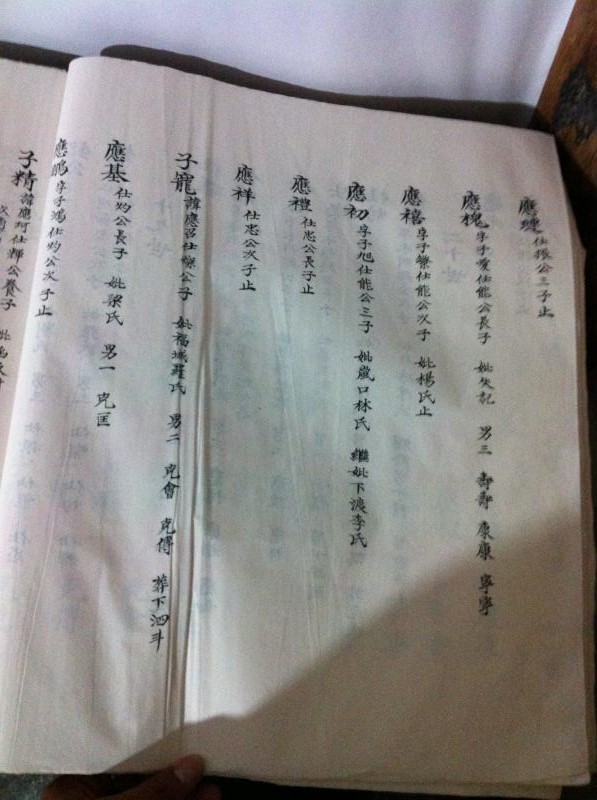 應璉 仕振公三子止
應槐 字子愛仕能公長子 妣失記 男三 壽壽 康康 寧寧
應禧 字子榮仕能公次子 妣楊氏止
應初 字子旭仕能公三子 妣歲口林氏 繼妣下渡李氏
應禮 仕忠公長子止
應祥 仕忠公次子止
子寵 諱應召仕燦公子 妣福城羅氏 男二 克會 克傅 葬下泗斗
應基 仕灼公長子 妣梁氏 男一 克匡
應鵬 字子鴻仕灼公次子止
子精 諱應珂仕鄰公養子